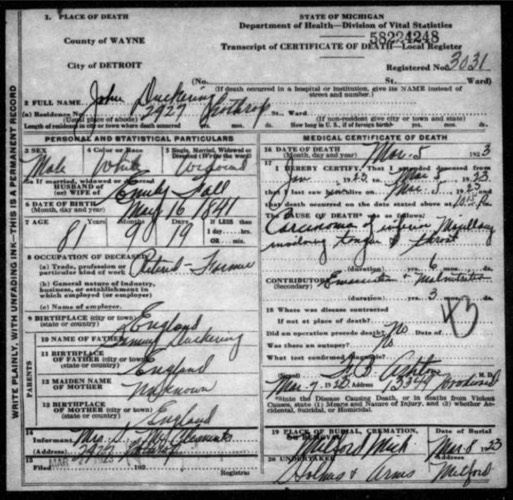 1. PLACE OF DEATH
County of WAYNE
City of DETROIT
STATE OF MICHIGAN
Department of Health—Division of Vital Statistics
58224248
Transcript of CERTIFICATE OF DEATH—Local Register
Registered No. 3031
(No. St. Ward)
(If death occurred in a hospital or institution, give its NAME instead of street and number.)
2 FULL NAME John Duckering
(a) Residence No. 2927 St. Ward
(Usual place of abode) (If non-resident give city or town and state)
Length of residence in city or town where death occurred yrs. mos. ds. How long in U. S., if of foreign birth
PERSONAL AND STATISTICAL PARTICULARS
3 SEX
Male
4 Color or Race
White
5 Single, Married, Widowed or Divorced (Write the word)
Widowed
5a If married, widowed
HUSBAND of
(or) WIFE of
Emily Fall
6 DATE OF BIRTH
(Month, day and year)
May 16 1841
7 AGE Years Months Days IF LESS than 1 day hrs. OR min.
81 9 19
8 OCCUPATION OF DECEASED
(a) Trade, profession or particular kind of work
Retired - Farmer
(b) General nature of Industry, business, or establishment in which employed (or employer)
(c) Name of employer
9 BIRTHPLACE (city or town)
(state or country)
England
10 NAME OF FATHER
Duckering
11 BIRTHPLACE OF FATHER (city or town)
(state or country)
England
12 MAIDEN NAME OF MOTHER
Unknown
13 BIRTHPLACE OF MOTHER (city or town)
(state or country)
England
PARENTS
14
Informant Mrs. Clements
(Address) 2927
15
Filed MAR 192 Registrar
MEDICAL CERTIFICATE OF DEATH
16 DATE OF DEATH
(Month, day and year)
Mar. 5 1923
17
I HEREBY CERTIFY, That I attended deceased from
1923 Mar. 5 1923
that I last saw him alive on Mar. 5 1923
and that death occurred on the date stated above at
The CAUSE OF DEATH was as follows:
Carcinoma of inferior Maxillary
involving tongue & throat
(duration) yrs. 6 mos. ds.
CONTRIBUTORY
(Secondary)
Emaciation & Malnutrition
(duration) yrs. 3 mos. ds.
43
18 Where was disease contracted
if not at place of death?
Did an operation precede death? No
Was there an autopsy? No
What test confirmed diagnosis?
(Signed) Ashton M. D.
Mar. 7 1923 Address 13344 Woodward
*State the Disease Causing Death, or in deaths from Violent Causes, state (1) Means and Nature of Injury, and (2) whether Accidental, Suicidal, or Homicidal.
19 PLACE OF BURIAL, CREMATION, OR REMOVAL
Milford Mich
Date of Burial
Mar. 8 1923
20 UNDERTAKER
Arms
Milford
WRITE PLAINLY, WITH UNFADING INK—THIS IS A PERMANENT RECORD